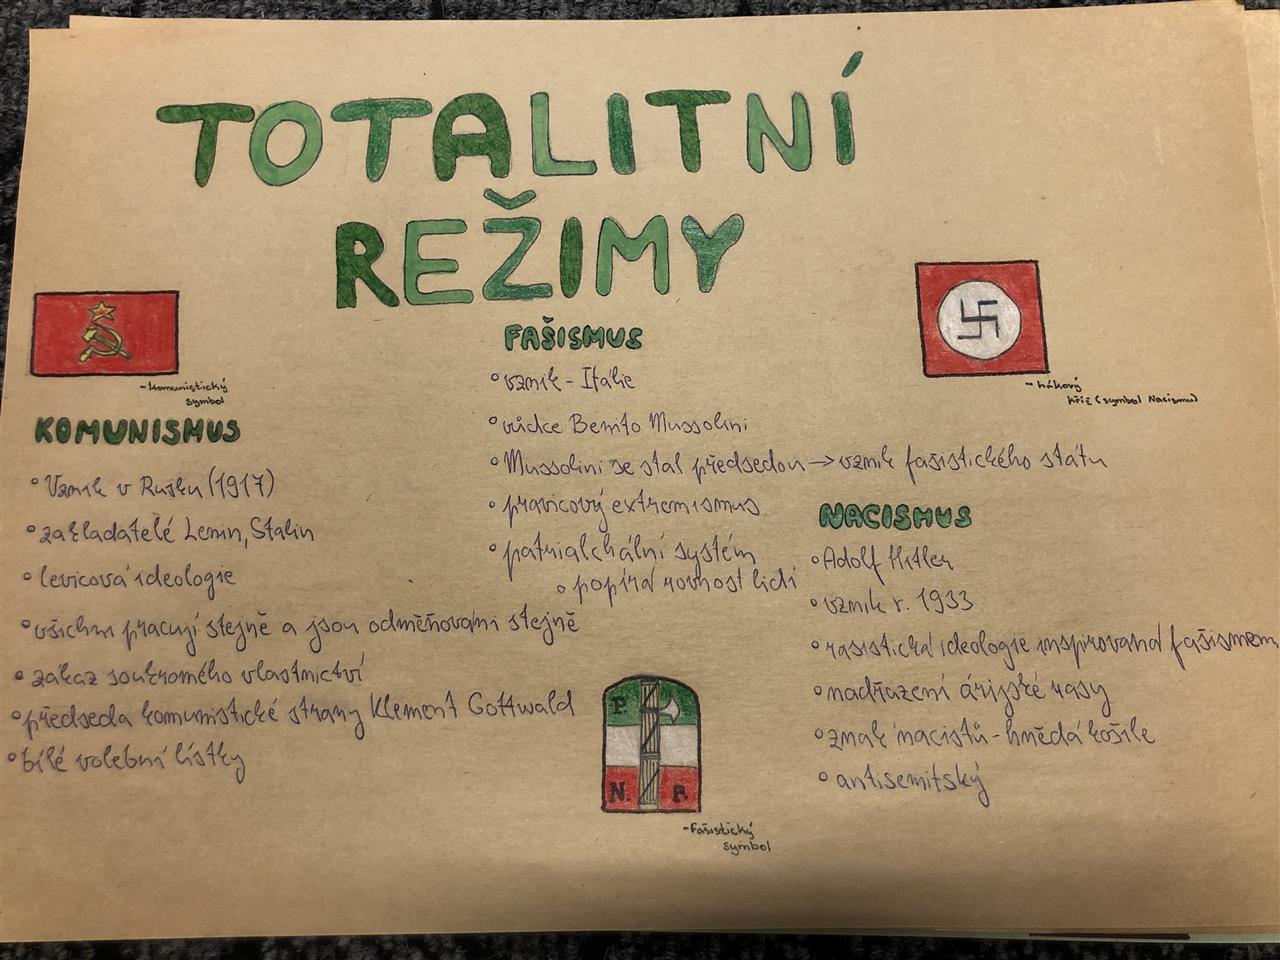 TOTALITNÍ
REŽIMY
-komunistický
symbol
KOMUNISMUS
Vznik v Rusku (1917)
zakladatelé Lenin, Stalin
levicová ideologie
všichni pracují stejně a jsou odměňováni stejně
zákaz soukromého vlastnictví
předseda komunistické strany Klement Gottwald
bílé volební lístky
FAŠISMUS
vznik - Itálie
vůdce Benito Mussolini
Mussolini se stal předsedou → vznik fašistického státu
pravicový extremismus
patrialchální systém
popírá rovnost lidí
P.
N. P.
-Fašistický
symbol
- hákový
kříž (symbol Nacismu)
NACISMUS
Adolf Hitler
vznik r. 1933
rasistická ideologie inspirovaná fašismem
nadřazení árijské rasy
znak nacistů - hnědá košile
antisemitský